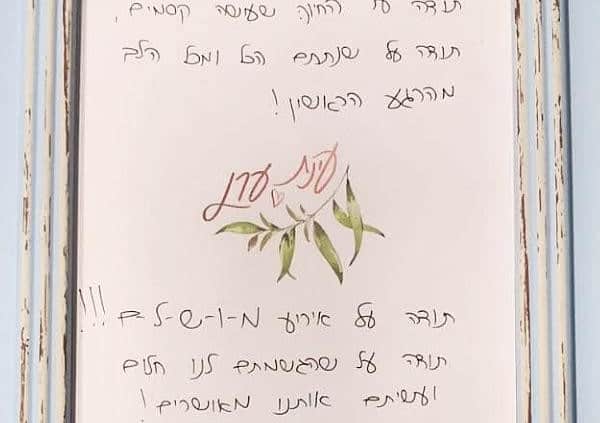 תודה על החיוך שעושה קסמים,
תודה על שנתתם הכל ומכל הלב
מהרגע הראשון!
עינת ערן
תודה על אירוע מ-ו-ש-ל-ם !!!
תודה על שהגשמתם לנו חלום
ועשיתם אותנו מאושרים!